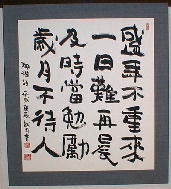 盛年不重來
一日難再晨
及時當勉勵
歲月不待人